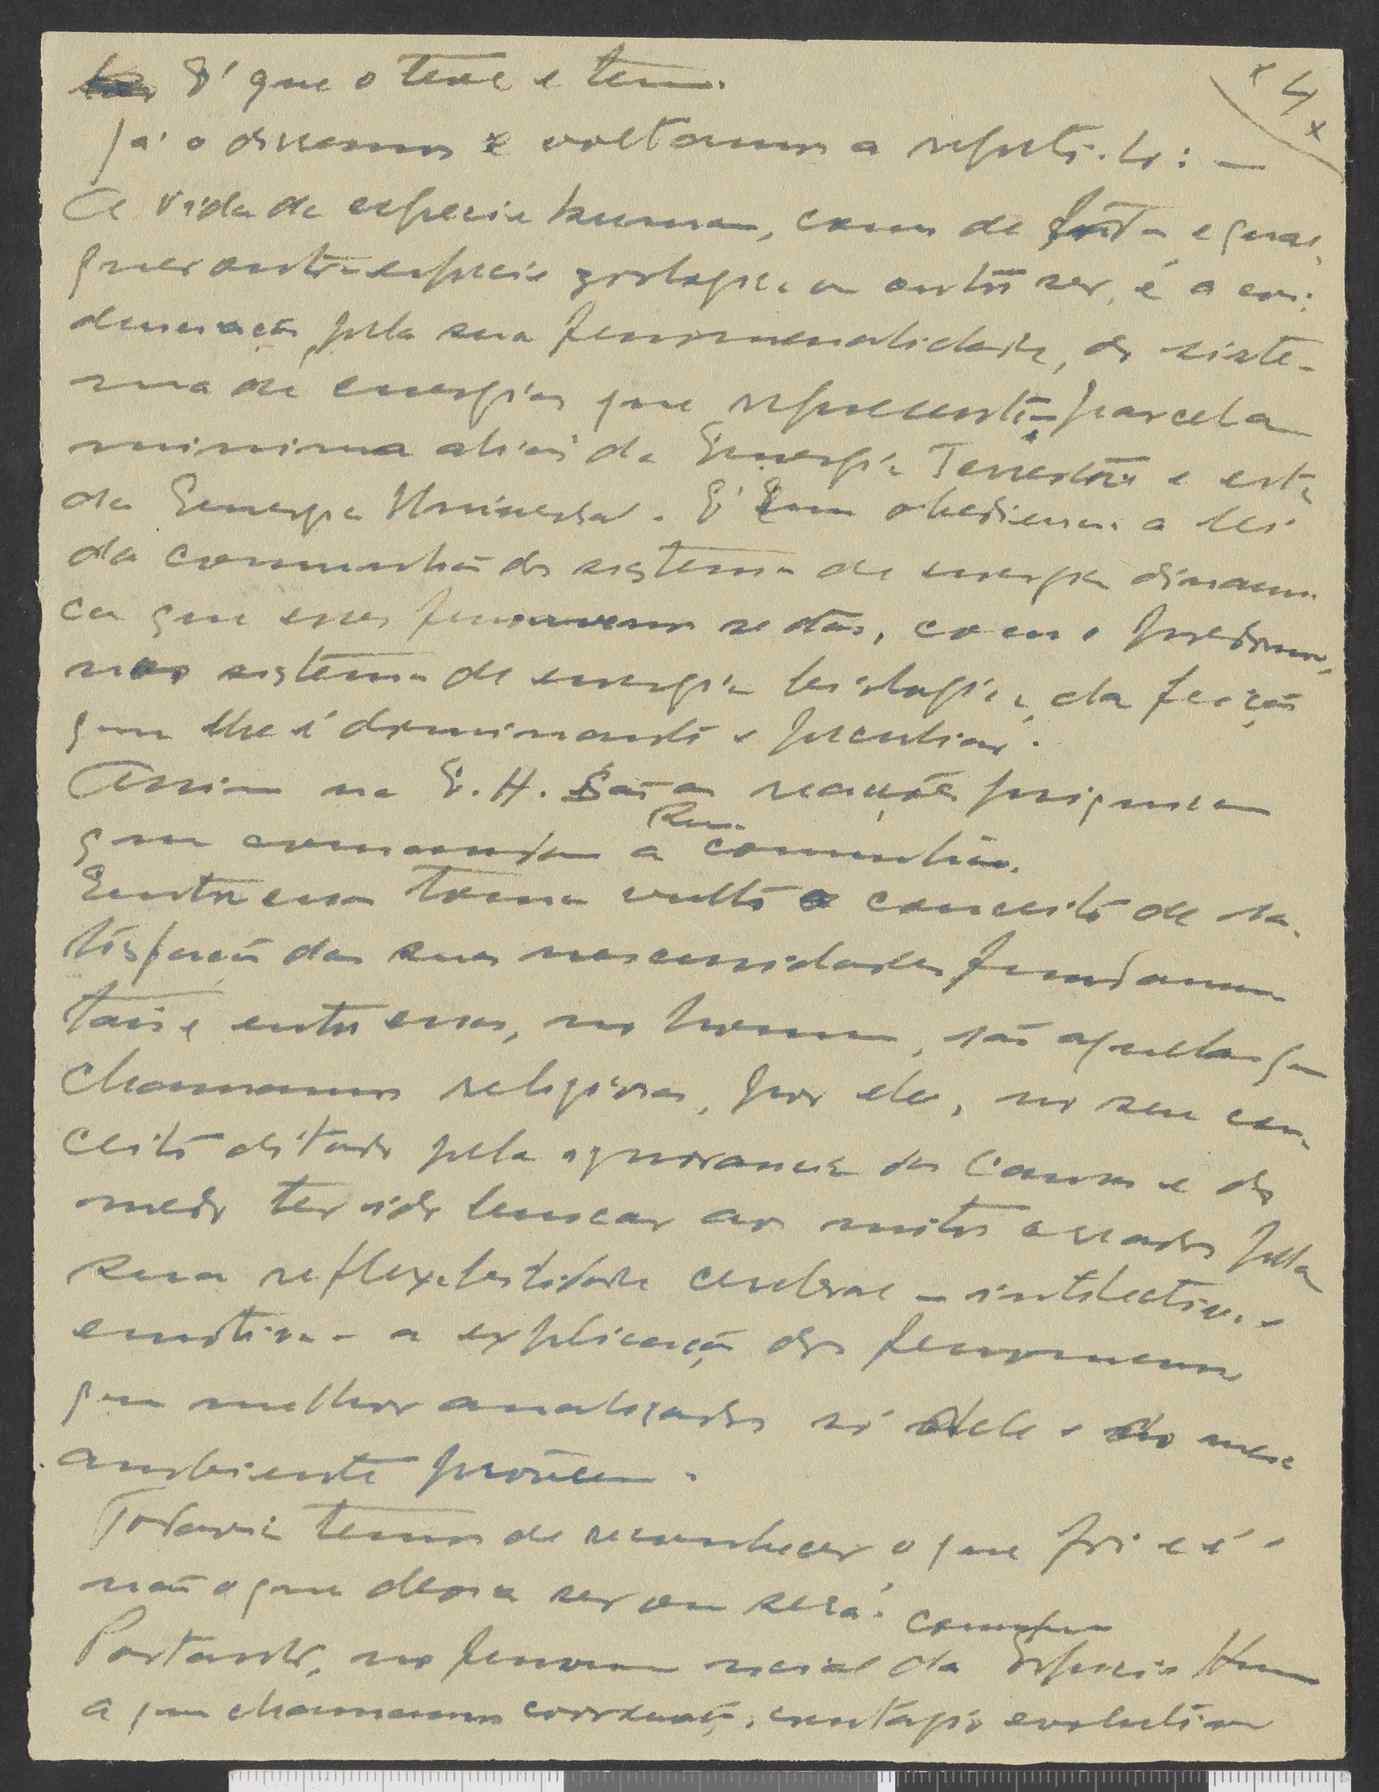 É que o teve e tem.
x 4 x
Já o dissemos e voltamos a repeti-lo: —
A vida da especie humana, como de toda e qual
quer outra especie zoologica ou outro ser, é a con-
densação, pela sua fenomenalidade, do siste-
ma de energias que representa parcela
minima aliás da Energia Terrestre e esta
da Energia Universal. É em obediencia a lei
da comunhão do sistema de energia dinami
ca que esses fenomenos se dão, com o predomi
no sistema de energia biologica, da feição
que lhe é dominante e peculiar.
Assim na E. H. São as reações
que comandam a comunhão.
Entre essa toma vulto o conceito de sa-
tisfação das suas necessidades fundamen
tais e entre essas, no homem, são aquelas que
chamamos religiosas, por ele, no seu con-
ceito ditado pela ignorancia das causas e do
medo ter ido buscar aos mitos creados pela
sua cerebral – intelectiva e
emotiva – a explicação dos fenomenos
que melhor analizados só dele e do meio
ambiente provêem.
Todavia temos de reconhecer o que foi e é e
não o que devia ser ou será.
Portanto, no fenomeno social da Especie Hum
a que chamamos evolutiva